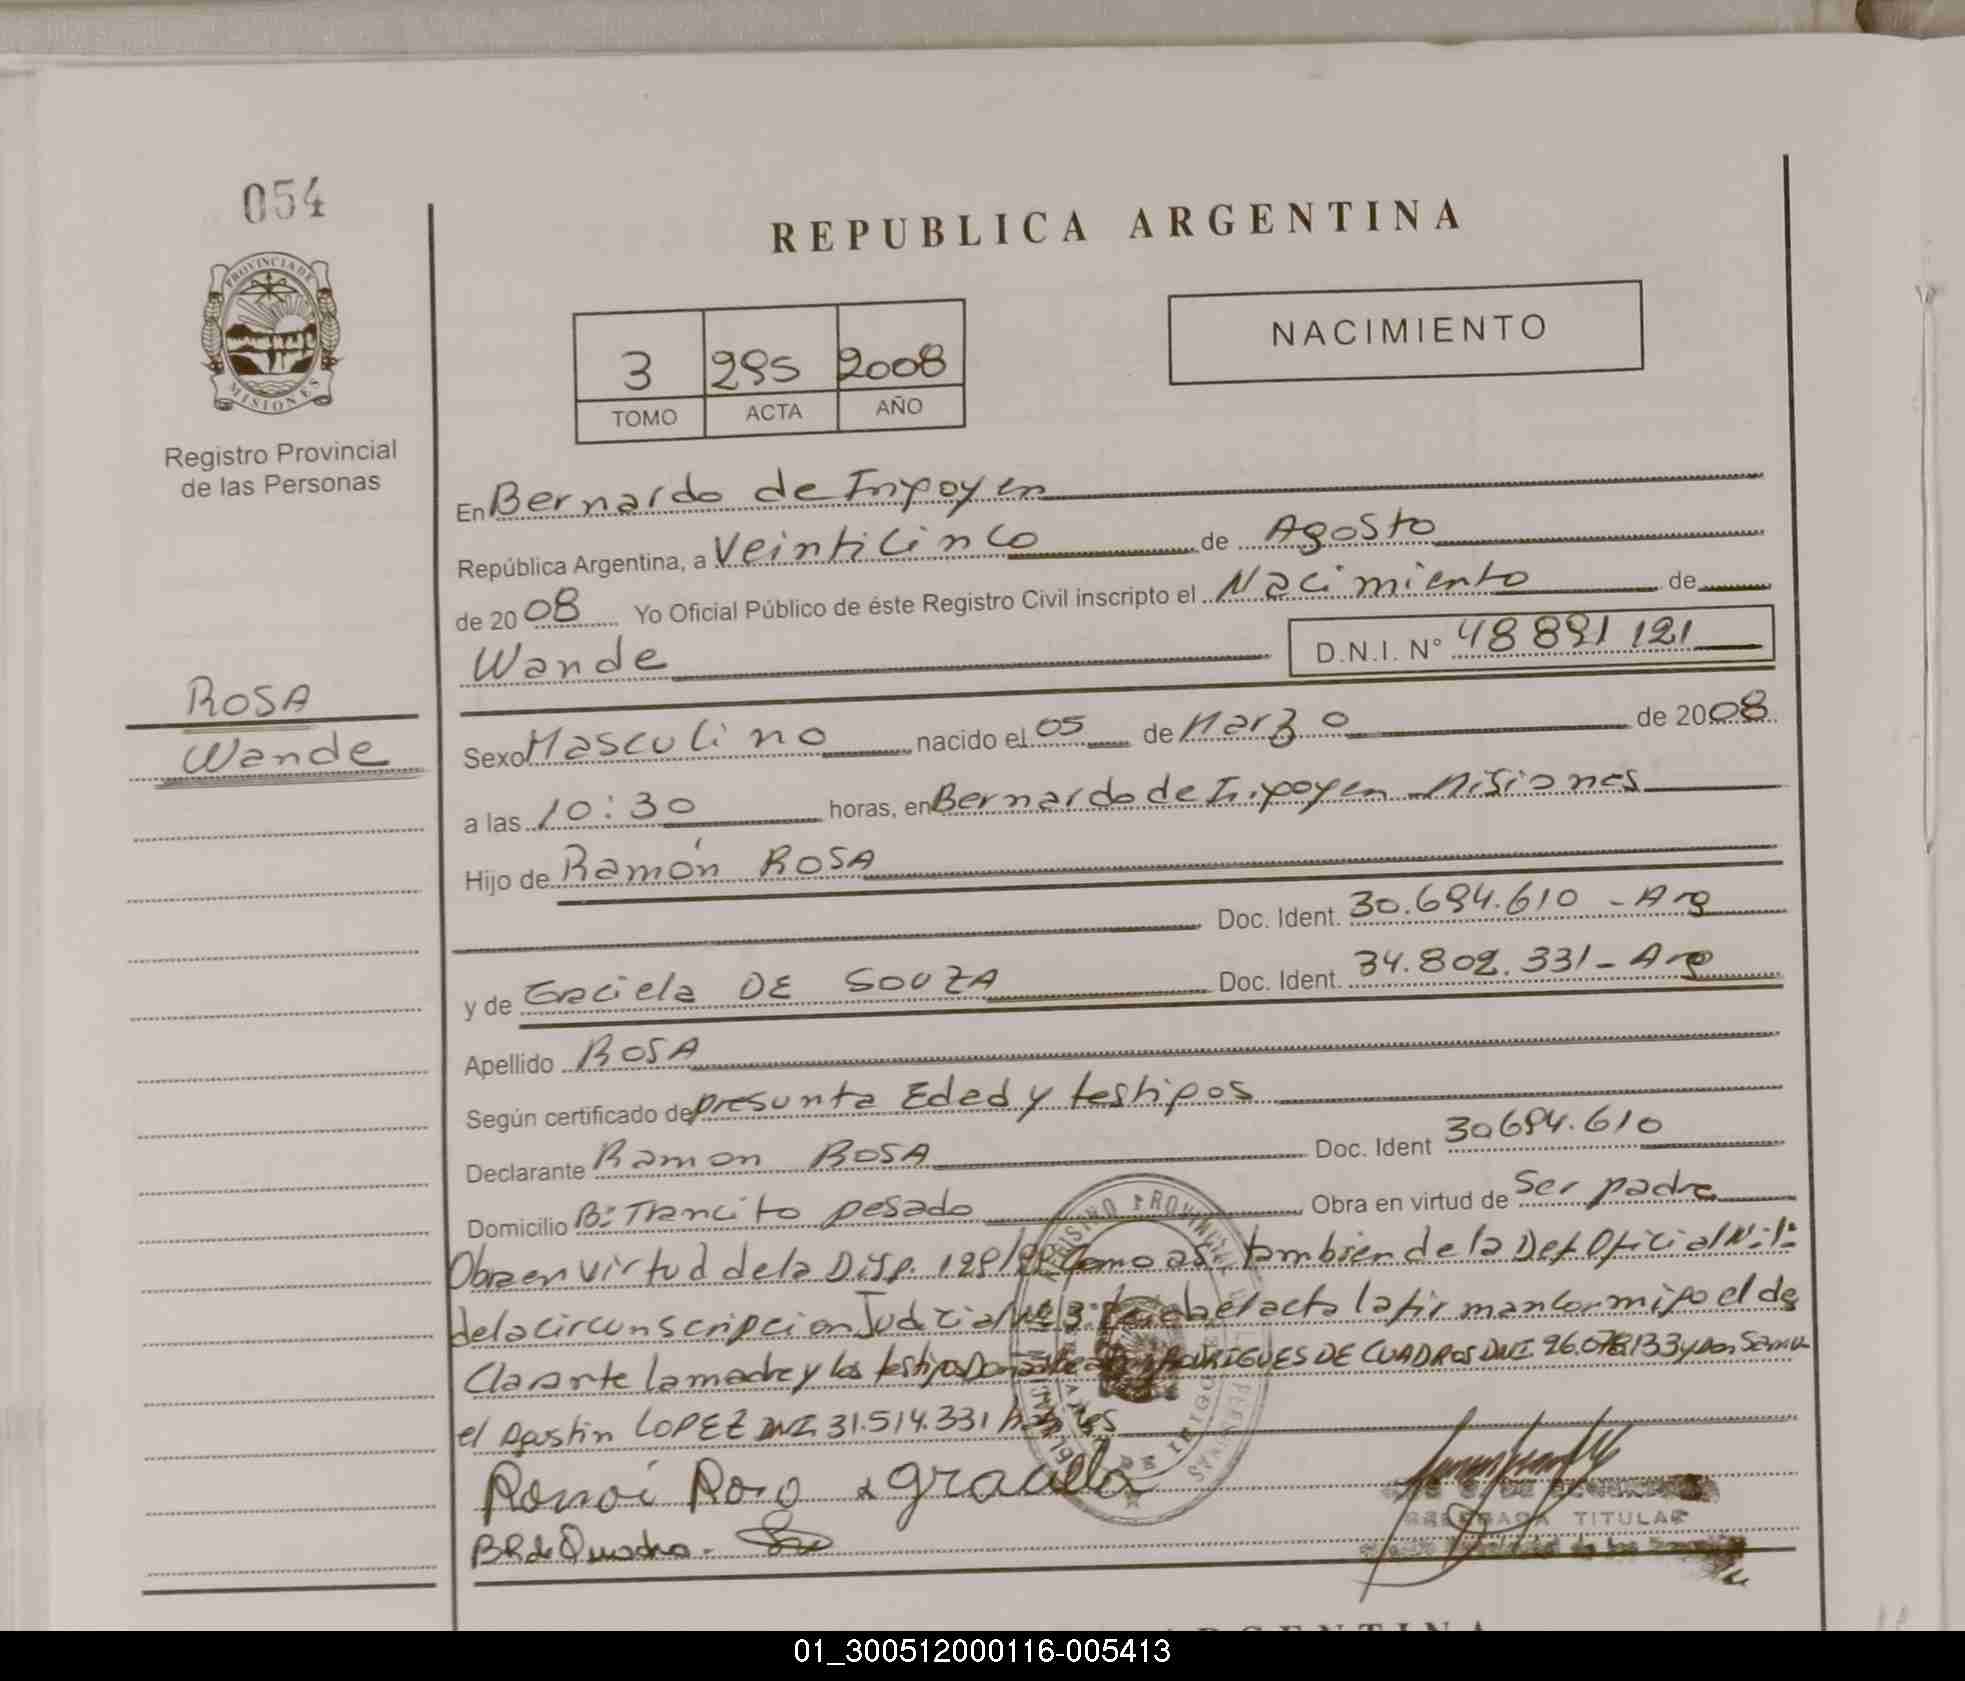 054
PROVINCIA DE
MISIONES
Registro Provincial
de las Personas
ROSA
Wande
REPUBLICA ARGENTINA
3 295 2008
TOMO ACTA AÑO
NACIMIENTO
En Bernardo de Irigoyen
República Argentina, a Veinticinco de Agosto
de 2008 Yo Oficial Público de éste Registro Civil inscripto el Nacimiento de
Wande D.N.I. N° 48 891 121
Sexo Masculino nacido el 05 de Marzo de 2008
a las 10:30 horas, en Bernardo de Irigoyen - Misiones
Hijo de Ramón ROSA
Doc. Ident. 30.694.610 - Arg
y de Graciela DE SOUZA Doc. Ident. 34.802.331 - Arg
Apellido ROSA
Según certificado de presunta Edad y testigos
Declarante Ramon ROSA Doc. Ident 30694.610
Domicilio B° Trancito pesado Obra en virtud de Ser padre
Obra en virtud de la Disp. como asi tambien de la Def. Oficial N° 1
de la circunscripcion Judicial N° 3 el acta la firman conmigo el de
Clarante la madre y los testigos RODRIGUES DE CUADROS DNI 26.078.133 y Don Samu
el Agustin LOPEZ DNI 31.514.331 habiles
Ramoi Rosa graciela
B R de Quadro.
DELEGADA TITULAR
01_300512000116-005413